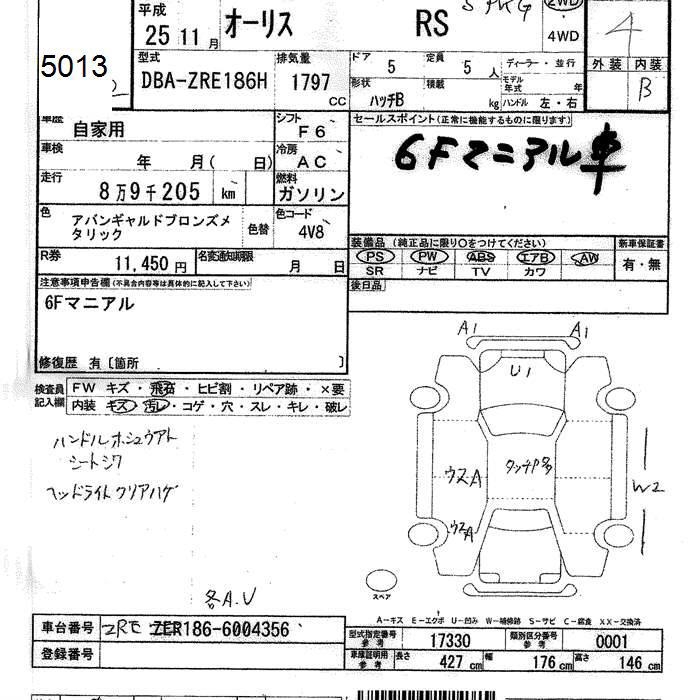 平成 25年 11月 オーリス RS S PKG 2WD 4WD
5013
型式 DBA-ZRE186H 排気量 1797 CC
ドア 5 定員 5 人 ディーラー・並行
形状 ハッチB 積載 kg モデル年式 年 ハンドル 左・右
外装 内装
4 B
車歴 自家用 シフト F6
車検 年 月( 日) 冷房 AC
走行 8万9千205 km 燃料 ガソリン
色 アバンギャルドブロンズメタリック 色替 色コード 4V8
R券 11,450円 名変通知期限 月 日
セールスポイント(正常に機能するものに限ります)
6Fマニアル車
装備品(純正品に限り○をつけてください) 新車保証書
PS PW ABS エアB AW 有・無
SR ナビ TV カワ
後日品
注意事項申告欄(不具合内容等は具体的に記入して下さい)
6Fマニアル
修復歴 有〔箇所 〕
検査員記入欄
FW キズ・飛石・ヒビ割・リペア跡・×要
内装 キズ・汚レ・コゲ・穴・スレ・キレ・破レ
ハンドルホシュウアト
シートシワ
ヘッドライトクリアハゲ
各A.U
A1 A1
U1
ウスA タッチP多
W2
ウスA
スペア
A-キズ E-エクボ U-凹み W-補修跡 S-サビ C-腐食 XX-交換済
車台番号 ZRE ZER186-6004356
登録番号
型式指定番号 参考 17330 類別区分番号 参考 0001
車庫証明用 参考 長さ 427 cm 幅 176 cm 高さ 146 cm